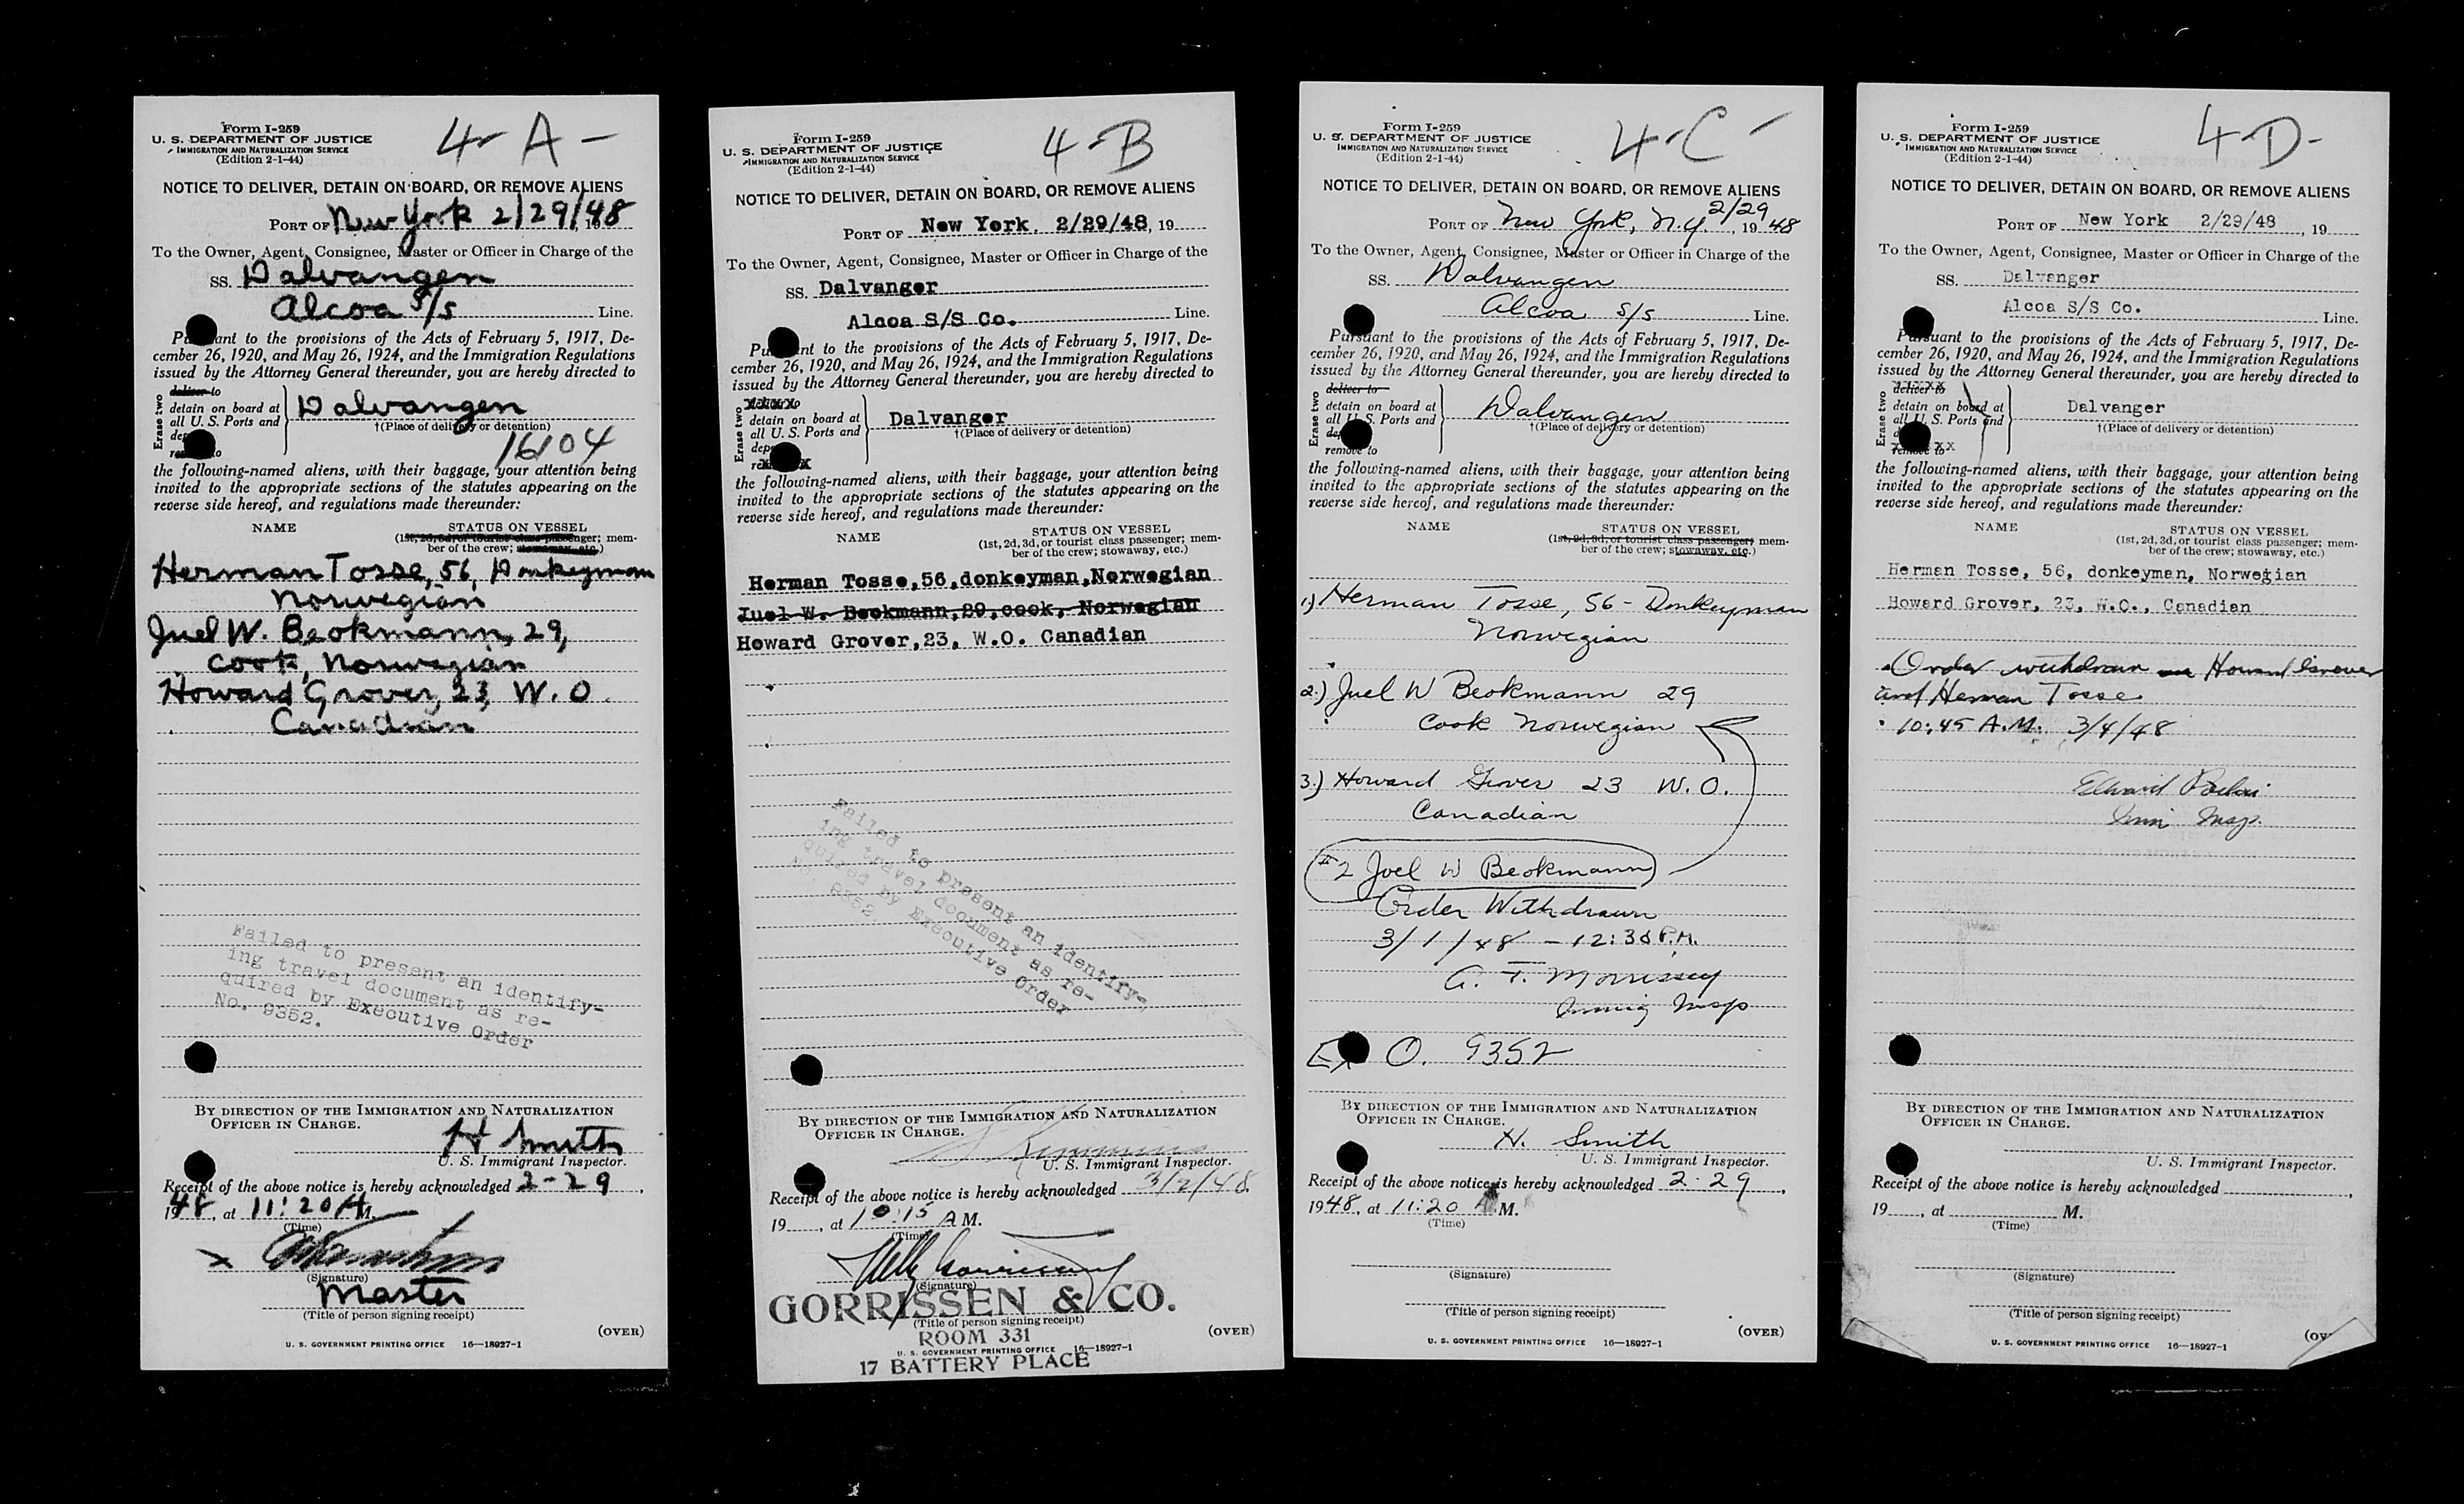 Form I-259
U. S. DEPARTMENT OF JUSTICE
IMMIGRATION AND NATURALIZATION SERVICE
(Edition 2-1-44)
4-A-
NOTICE TO DELIVER, DETAIN ON BOARD, OR REMOVE ALIENS
PORT OF New York 2/29/48, 19
To the Owner, Agent, Consignee, Master or Officer in Charge of the
SS. Dalvangen
Alcoa S/S Line.
ant to the provisions of the Acts of February 5, 1917, De-
cember 26, 1920, and May 26, 1924, and the Immigration Regulations
issued by the Attorney General thereunder, you are hereby directed to
Erase two
deliver to
detain on board at
all U. S. Ports and
Dalvangen
†(Place of delivery or detention)
16104
the following-named aliens, with their baggage, your attention being
invited to the appropriate sections of the statutes appearing on the
reverse side hereof, and regulations made thereunder:
NAME STATUS ON VESSEL
(1st, 2d, 3d, or tourist class passenger; mem-
ber of the crew; stowaway, etc.)
Herman Tosse, 56, Donkeyman
Norwegian
Juel W. Beokmann, 29,
cook, Norwegian
Howard Grover, 23, W. O.
Canadian
Failed to present an identify-
ing travel document as re-
quired by Executive Order
No. 9352.
BY DIRECTION OF THE IMMIGRATION AND NATURALIZATION
OFFICER IN CHARGE.
H Smith
U. S. Immigrant Inspector.
Receipt of the above notice is hereby acknowledged 2-29,
1948, at 11:20 A M.
(Time)
x
(Signature)
Master
(Title of person signing receipt)
(OVER)
U. S. GOVERNMENT PRINTING OFFICE 16—18927-1
Form I-259
U. S. DEPARTMENT OF JUSTICE
IMMIGRATION AND NATURALIZATION SERVICE
(Edition 2-1-44)
4-B
NOTICE TO DELIVER, DETAIN ON BOARD, OR REMOVE ALIENS
PORT OF New York, 2/29/48, 19
To the Owner, Agent, Consignee, Master or Officer in Charge of the
SS. Dalvanger
Alcoa S/S Co. Line.
nt to the provisions of the Acts of February 5, 1917, De-
cember 26, 1920, and May 26, 1924, and the Immigration Regulations
issued by the Attorney General thereunder, you are hereby directed to
Erase two
detain on board at
all U. S. Ports and
Dalvanger
†(Place of delivery or detention)
the following-named aliens, with their baggage, your attention being
invited to the appropriate sections of the statutes appearing on the
reverse side hereof, and regulations made thereunder:
NAME STATUS ON VESSEL
(1st, 2d, 3d, or tourist class passenger; mem-
ber of the crew; stowaway, etc.)
Herman Tosse,56,donkeyman,Norwegian
Juel W. Beokmann,29,cook, Norwegian
Howard Grover,23, W.O. Canadian
Failed to present an identify-
ing travel document as re-
quired by Executive Order
No. 9352.
BY DIRECTION OF THE IMMIGRATION AND NATURALIZATION
OFFICER IN CHARGE.
U. S. Immigrant Inspector.
Receipt of the above notice is hereby acknowledged 3/2/48
19, at 10:15 A M.
(Time)
(Signature)
GORRISSEN & CO.
(Title of person signing receipt)
ROOM 331
(OVER)
U. S. GOVERNMENT PRINTING OFFICE 16—18927-1
17 BATTERY PLACE
Form I-259
U. S. DEPARTMENT OF JUSTICE
IMMIGRATION AND NATURALIZATION SERVICE
(Edition 2-1-44)
4-C-
NOTICE TO DELIVER, DETAIN ON BOARD, OR REMOVE ALIENS
PORT OF New York, N.Y. 2/29, 1948
To the Owner, Agent, Consignee, Master or Officer in Charge of the
SS. Dalvangen
Alcoa S/S Line.
Pursuant to the provisions of the Acts of February 5, 1917, De-
cember 26, 1920, and May 26, 1924, and the Immigration Regulations
issued by the Attorney General thereunder, you are hereby directed to
Erase two
deliver to
detain on board at
all U. S. Ports and
remove to
Dalvangen
†(Place of delivery or detention)
the following-named aliens, with their baggage, your attention being
invited to the appropriate sections of the statutes appearing on the
reverse side hereof, and regulations made thereunder:
NAME STATUS ON VESSEL
(1st, 2d, 3d, or tourist class passenger; mem-
ber of the crew; stowaway, etc.)
1) Herman Tosse, 56 - Donkeyman
Norwegian
2.) Juel W Beokmann 29
Cook Norwegian
3.) Howard Grover 23 W. O.
Canadian
#2 Joel W Beokmann
Order Withdrawn
3/1/48 - 12:30 P.M.
A. F. Morrissey
Immig Insp
Ex O. 9352
BY DIRECTION OF THE IMMIGRATION AND NATURALIZATION
OFFICER IN CHARGE.
H. Smith
U. S. Immigrant Inspector.
Receipt of the above notice is hereby acknowledged 2-29,
1948, at 11:20 A M.
(Time)
(Signature)
(Title of person signing receipt)
(OVER)
U. S. GOVERNMENT PRINTING OFFICE 16—18927-1
Form I-259
U. S. DEPARTMENT OF JUSTICE
IMMIGRATION AND NATURALIZATION SERVICE
(Edition 2-1-44)
4-D-
NOTICE TO DELIVER, DETAIN ON BOARD, OR REMOVE ALIENS
PORT OF New York 2/29/48, 19
To the Owner, Agent, Consignee, Master or Officer in Charge of the
SS. Dalvanger
Alcoa S/S Co. Line.
Pursuant to the provisions of the Acts of February 5, 1917, De-
cember 26, 1920, and May 26, 1924, and the Immigration Regulations
issued by the Attorney General thereunder, you are hereby directed to
Erase two
deliver to
detain on board at
all U. S. Ports and
remove to
Dalvanger
†(Place of delivery or detention)
the following-named aliens, with their baggage, your attention being
invited to the appropriate sections of the statutes appearing on the
reverse side hereof, and regulations made thereunder:
NAME STATUS ON VESSEL
(1st, 2d, 3d, or tourist class passenger; mem-
ber of the crew; stowaway, etc.)
Herman Tosse, 56, donkeyman, Norwegian
Howard Grover, 23, W.O., Canadian
Order withdrawn Howard Grover
and Herman Tosse
10:45 A.M. 3/4/48
Edward
Imm Insp.
BY DIRECTION OF THE IMMIGRATION AND NATURALIZATION
OFFICER IN CHARGE.
U. S. Immigrant Inspector.
Receipt of the above notice is hereby acknowledged ,
19, at M.
(Time)
(Signature)
(Title of person signing receipt)
(OV
U. S. GOVERNMENT PRINTING OFFICE 16—18927-1